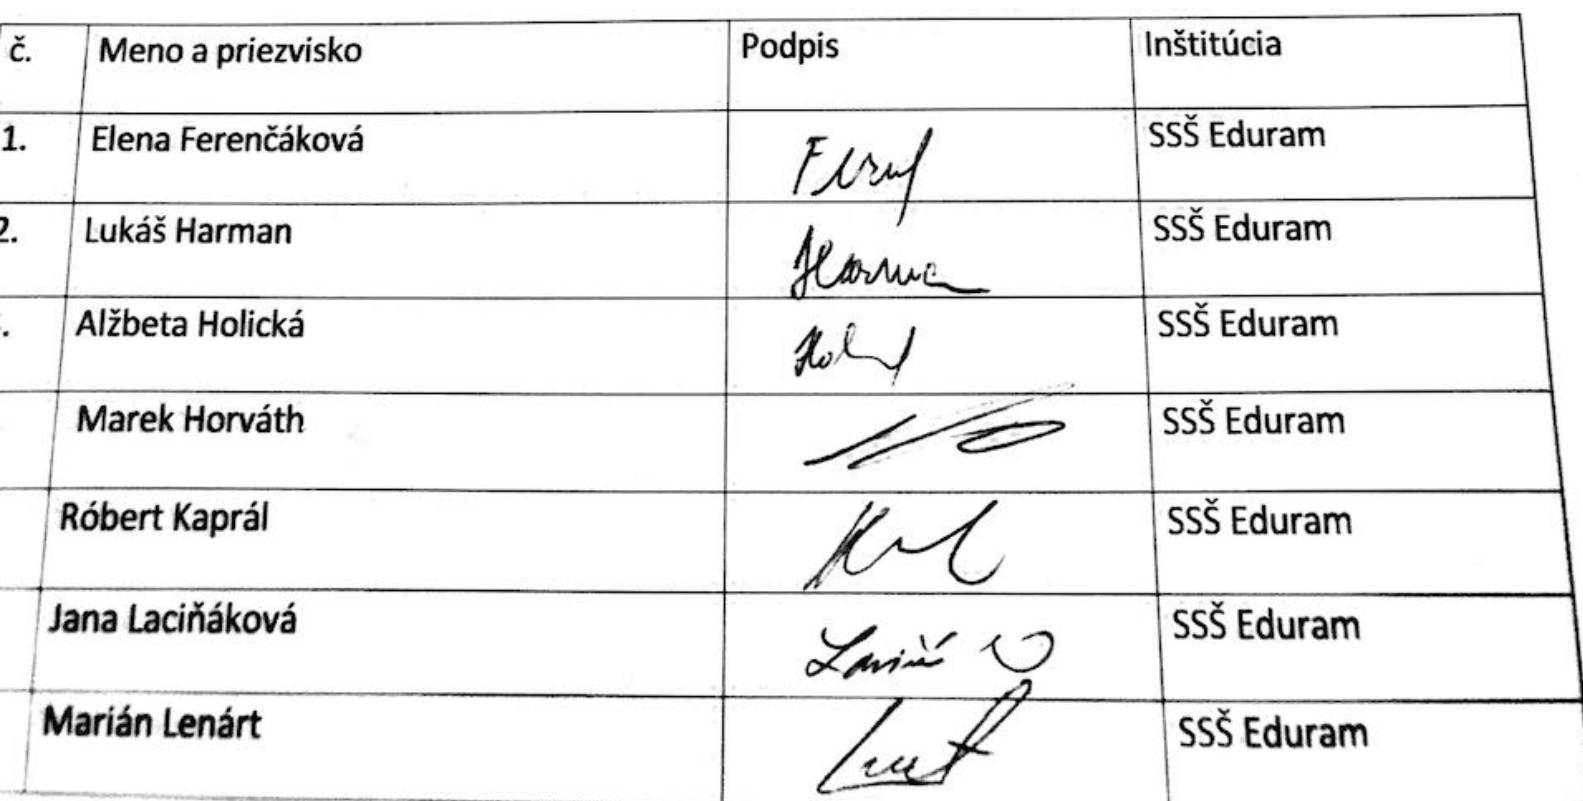 č. Meno a priezvisko Podpis Inštitúcia
1. Elena Ferenčáková SSŠ Eduram
2. Lukáš Harman SSŠ Eduram
Alžbeta Holická SSŠ Eduram
Marek Horváth SSŠ Eduram
Róbert Kaprál SSŠ Eduram
Jana Laciňáková SSŠ Eduram
Marián Lenárt SSŠ Eduram